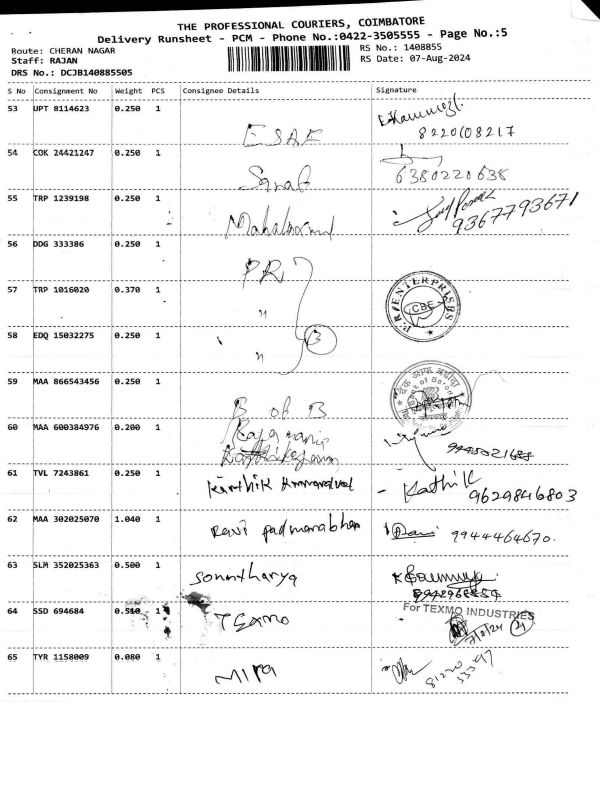 THE PROFESSIONAL COURIERS, COIMBATORE
Delivery Runsheet - PCM - Phone No.:0422-3505555 - Page No.:5
Route: CHERAN NAGAR
RS No.: 1408855
Staff: RAJAN
RS Date: 07-Aug-2024
DRS No.: DCJB140885505
S No Consignment No Weight PCS Consignee Details Signature
53 UPT 8114623 0.250 1 ESAF 8220608217
54 COK 24421247 0.250 1 6380220638
55 TRP 1239198 0.250 1 Mahalaxmi 9367793671
56 DDG 333386 0.250 1 PR
57 TRP 1016020 0.370 1 "
P.R. ENTERPRISES
CBE
58 EDQ 15032275 0.250 1 " 3
59 MAA 866543456 0.250 1 B of B
Bank of Baroda
60 MAA 600384976 0.200 1
61 TVL 7243861 0.250 1 Karthik - Kathik
9629846803
62 MAA 302025070 1.040 1 Ravi padmanabhan Ravi 9944464670.
63 SLM 352025363 0.500 1 Sountharya
64 SSD 694684 0.510 1 Texmo For TEXMO INDUSTRIES
7/8/24
65 TYR 1158009 0.080 1 Mira
81220